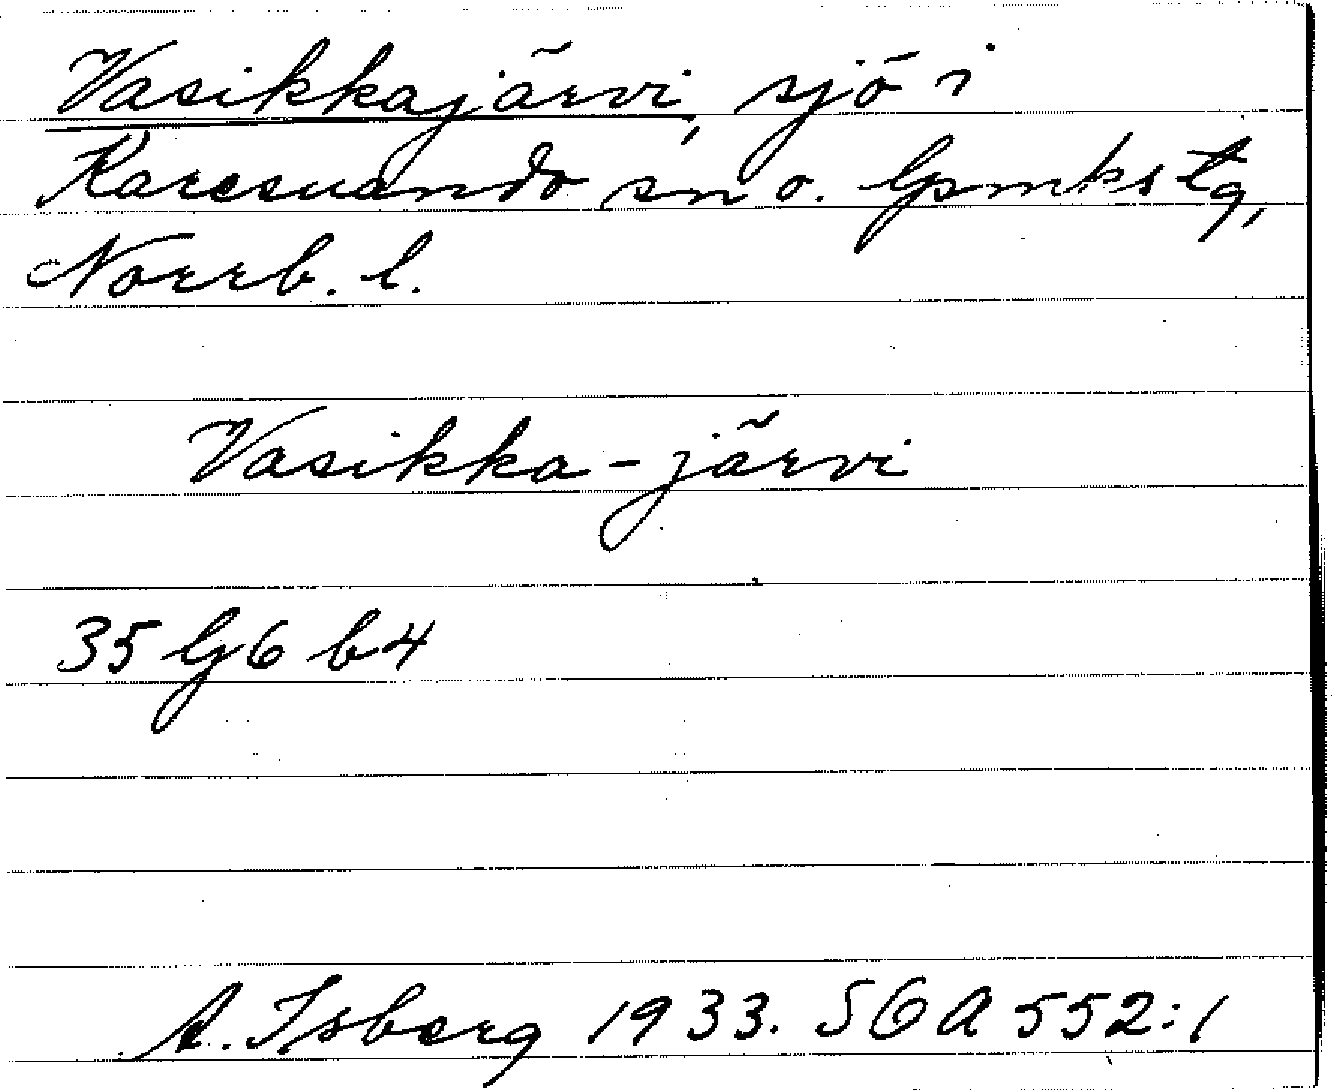 Vasikkajärvi, sjö i
Karesuando sn o. lpmkstg,
Norrb. l.
Vasikka-järvi
35 Gj 6 b 4
A. Isberg 1933. SOA 552:1